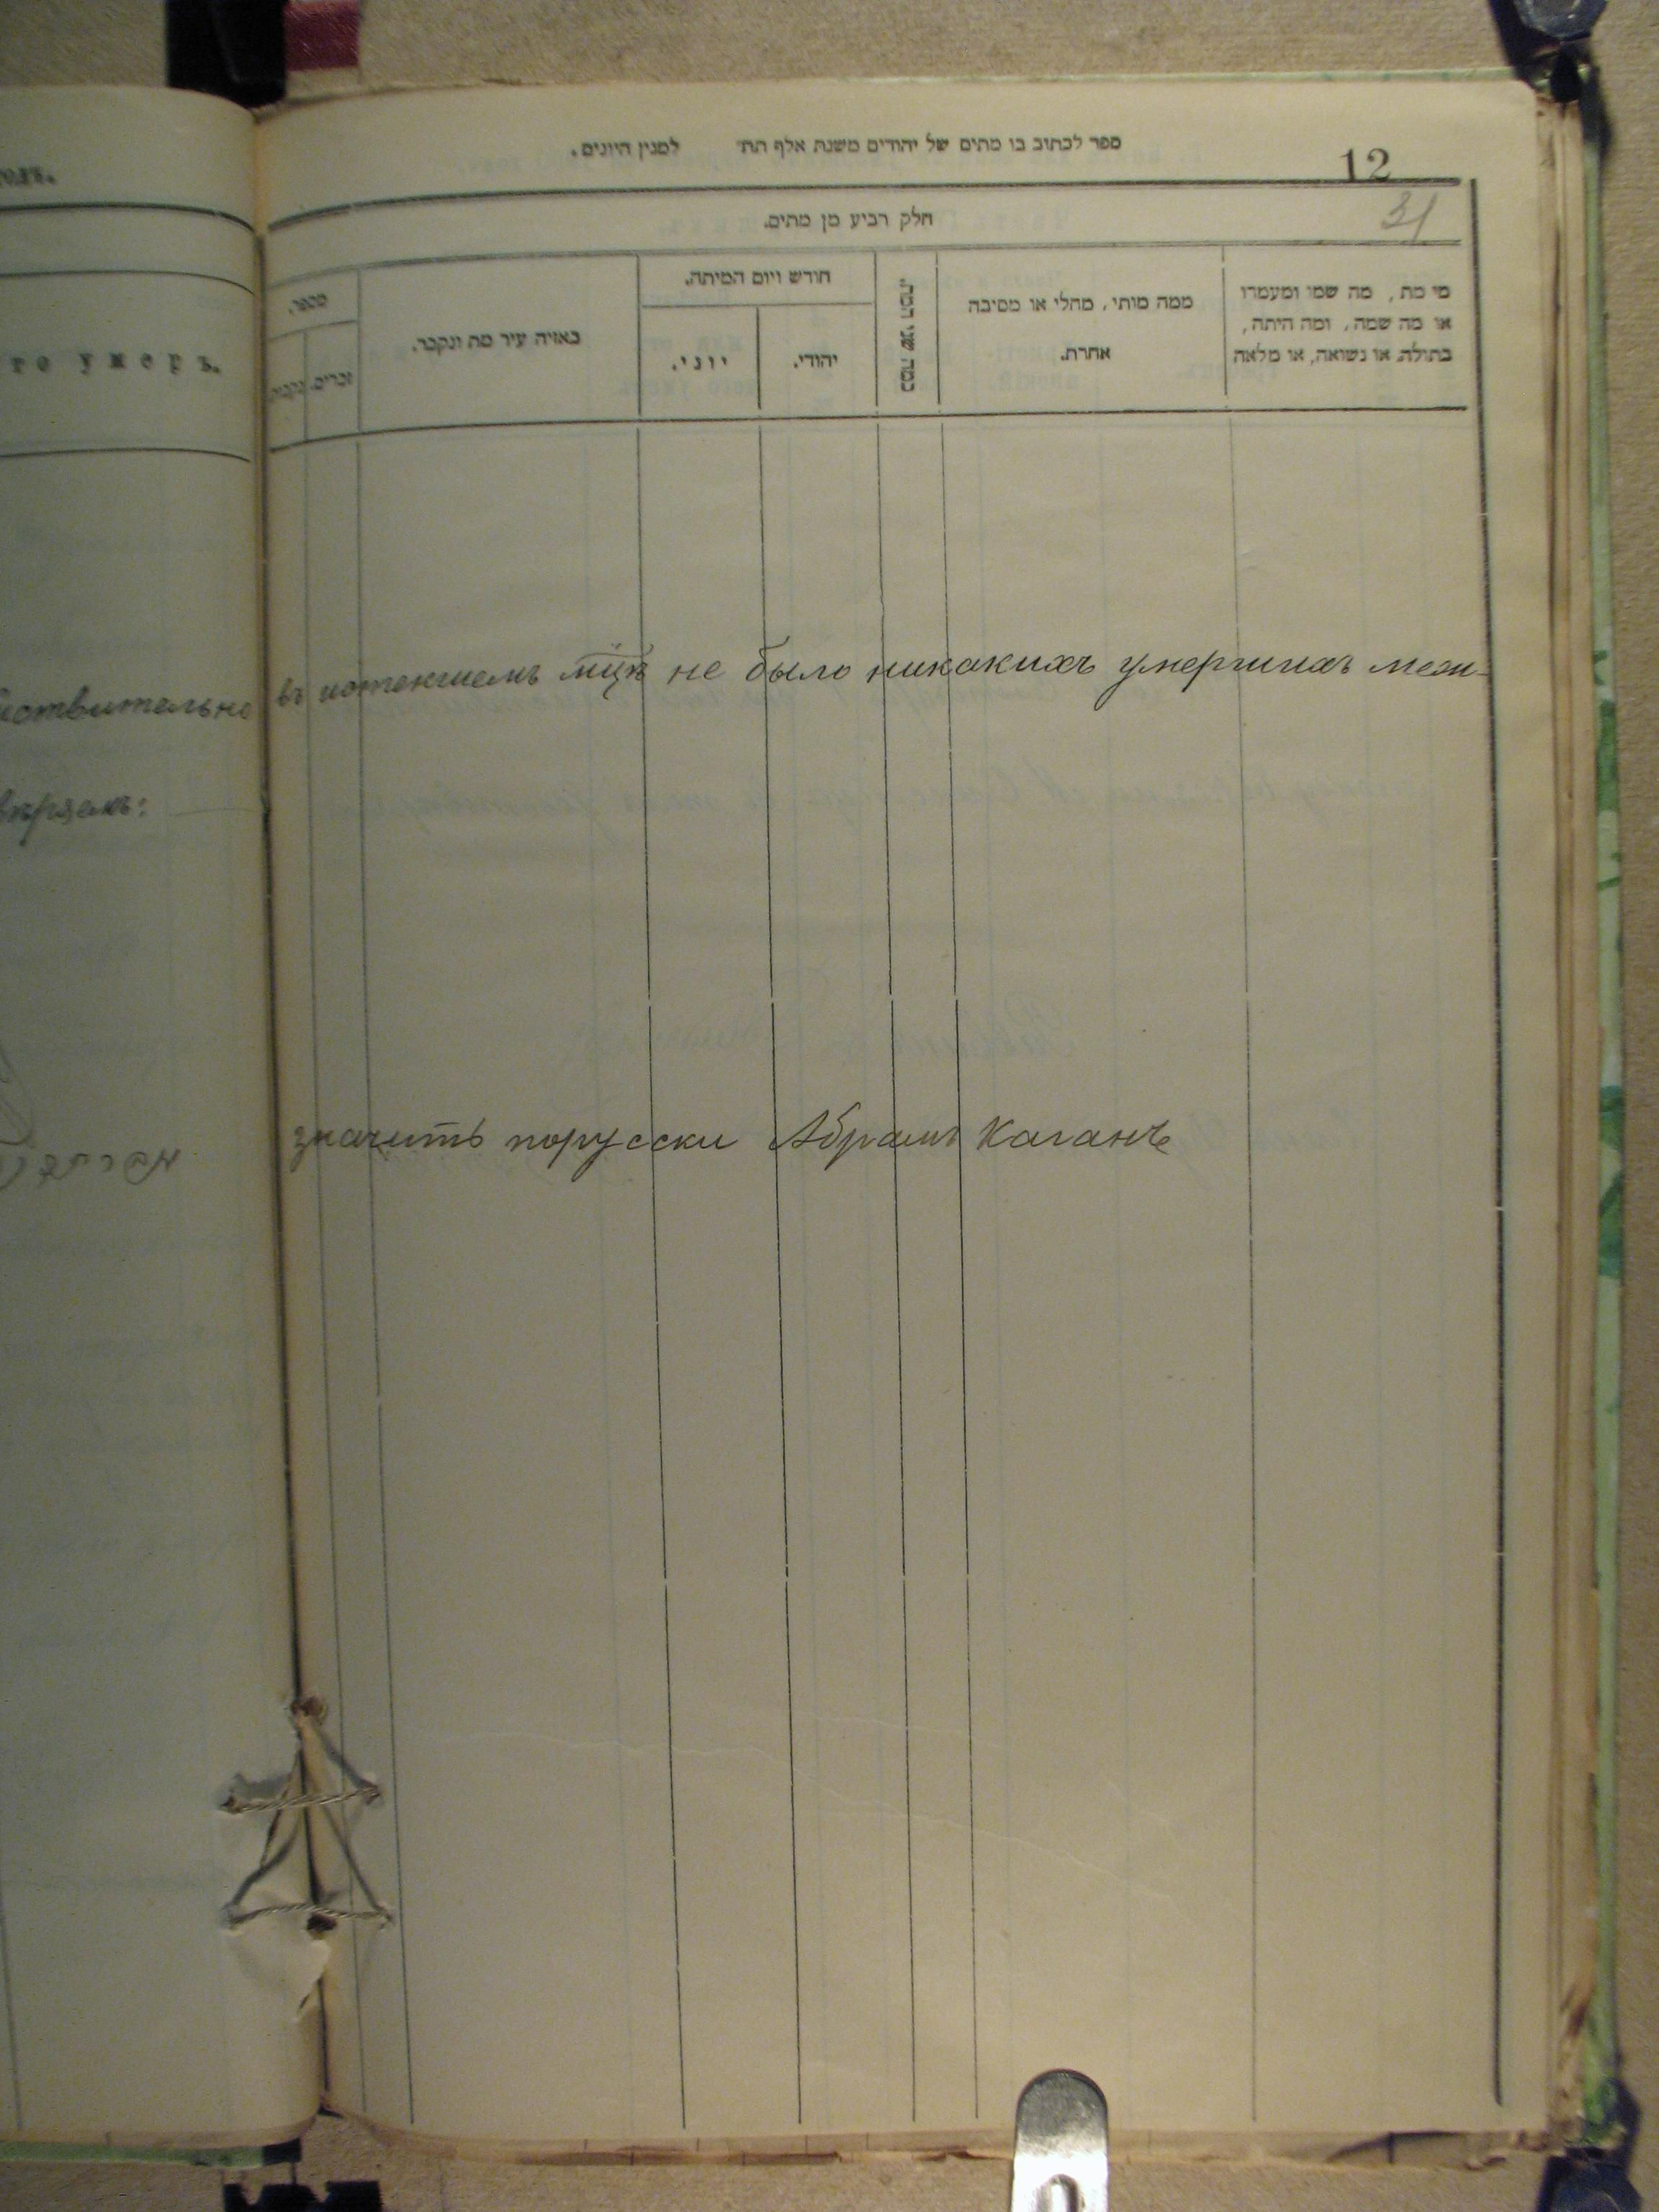 ספר לכתוב בו מתים של יהודים משנת אלף תת׳ למנין היונים.
12
31
חלק רביע מן מתים.
מי מת, מה שמו ומעמדו
או מה שמה, ומה היתה,
בתולה או נשואה, או מלאה
ממה מותי, מחלי או מסיבה
אחרת.
כמה שני המת.
חודש ויום המיתה.
יהודי.
יוני.
באיזה עיר מת ונקבר.
מספר.
זכרים.
נקבות
го умеръ.
въ истекшемъ мцѣ не было никакихъ умершихъ меж-
значитъ порусски Абрамъ Каганъ